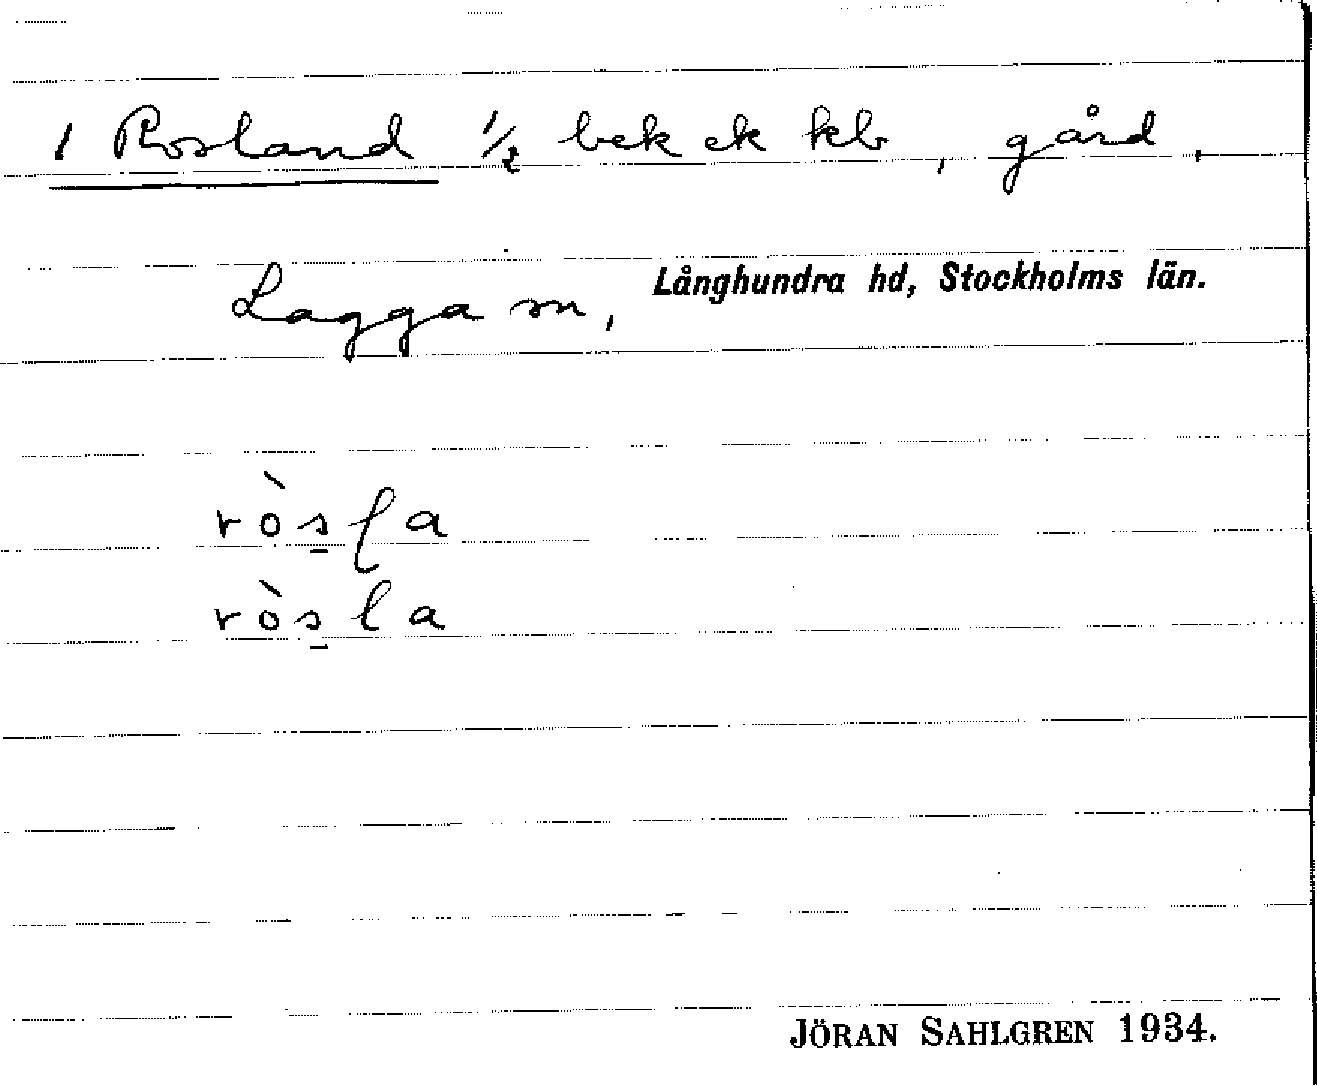 1 Rosland 1/2 bek ck kb, gård,
Lagga sn, Långhundra hd, Stockholms län.
ròs̲ʃa
ròs̲la
JÖRAN SAHLGREN 1934.